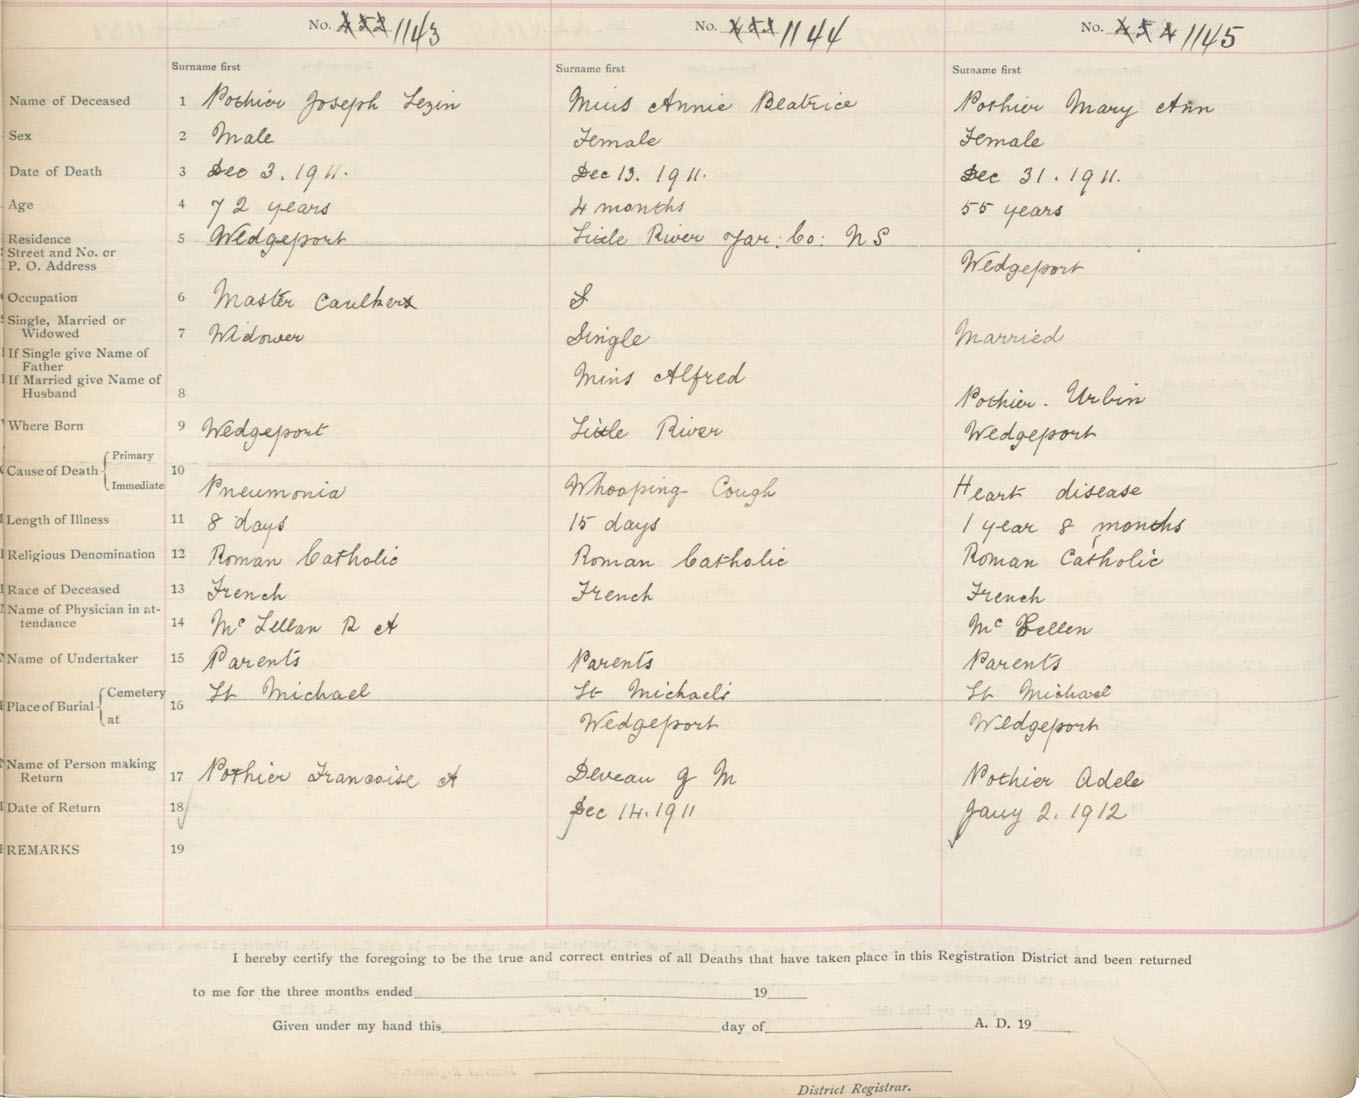 No. 452 1143 No. 453 1144 No. 454 1145
Surname first Surname first Surname first
Name of Deceased 1 Pothier Joseph Lezin Mius Annie Beatrice Pothier Mary Ann
Sex 2 Male Female Female
Date of Death 3 Dec 3. 1911. Dec 13. 1911. Dec 31. 1911.
Age 4 72 years 4 months 55 years
Residence 5 Wedgeport Little River Yar: Co: N S
Street and No. or
P. O. Address Wedgeport
Occupation 6 Master Caulkers S
Single, Married or
Widowed 7 Widower Single Married
If Single give Name of
Father Mius Alfred
If Married give Name of
Husband 8 Pothier. Urbin
Where Born 9 Wedgeport Little River Wedgeport
Cause of Death { Primary 10
Immediate Pneumonia Whooping Cough Heart disease
Length of Illness 11 8 days 15 days 1 year 8 months
Religious Denomination 12 Roman Catholic Roman Catholic Roman Catholic
Race of Deceased 13 French French French
Name of Physician in at-
tendance 14 Mc Lellan R A Mc Lellen
Name of Undertaker 15 Parents Parents Parents
Place of Burial { Cemetery 16 St Michael St Michael's St Michael
at Wedgeport Wedgeport
Name of Person making
Return 17 Pothier Francoise A Deveau J M Pothier Adele
Date of Return 18 Dec 14. 1911 Jany 2. 1912
REMARKS 19
I hereby certify the foregoing to be the true and correct entries of all Deaths that have taken place in this Registration District and been returned
to me for the three months ended 19
Given under my hand this day of A. D. 19
District Registrar.